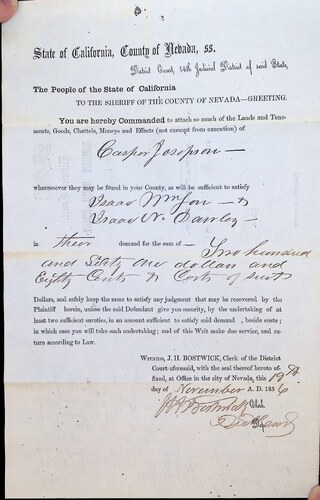 State of California, County of Nevada, ss.
District Court, 14th Judicial District of said State,
The People of the State of California
TO THE SHERIFF OF THE COUNTY OF NEVADA—GREETING.
You are hereby Commanded to attach so much of the Lands and Tene-
ments, Goods, Chattels, Moneys and Effects (not exempt from execution) of
Casper Josepson
wheresoever they may be found in your County, as will be sufficient to satisfy
Isaac &
Isaac N. Dawley
in their demand for the sum of Two hundred
and Sixty one dollars and
Eighty Cents & Costs of suit
Dollars, and safely keep the same to satisfy any judgment that may be recovered by the
Plaintiff herein, unless the said Defendant give you security, by the undertaking of at
least two sufficient sureties, in an amount sufficient to satisfy said demand, beside costs;
in which case you will take such undertaking; and of this Writ make due service, and re-
turn according to Law.
WITNESS, J. H. BOSTWICK, Clerk of the District
Court aforesaid, with the seal thereof hereto af-
fixed, at Office in the city of Nevada, this 19th
day of November A. D. 1856
J H Bostwick Clerk.